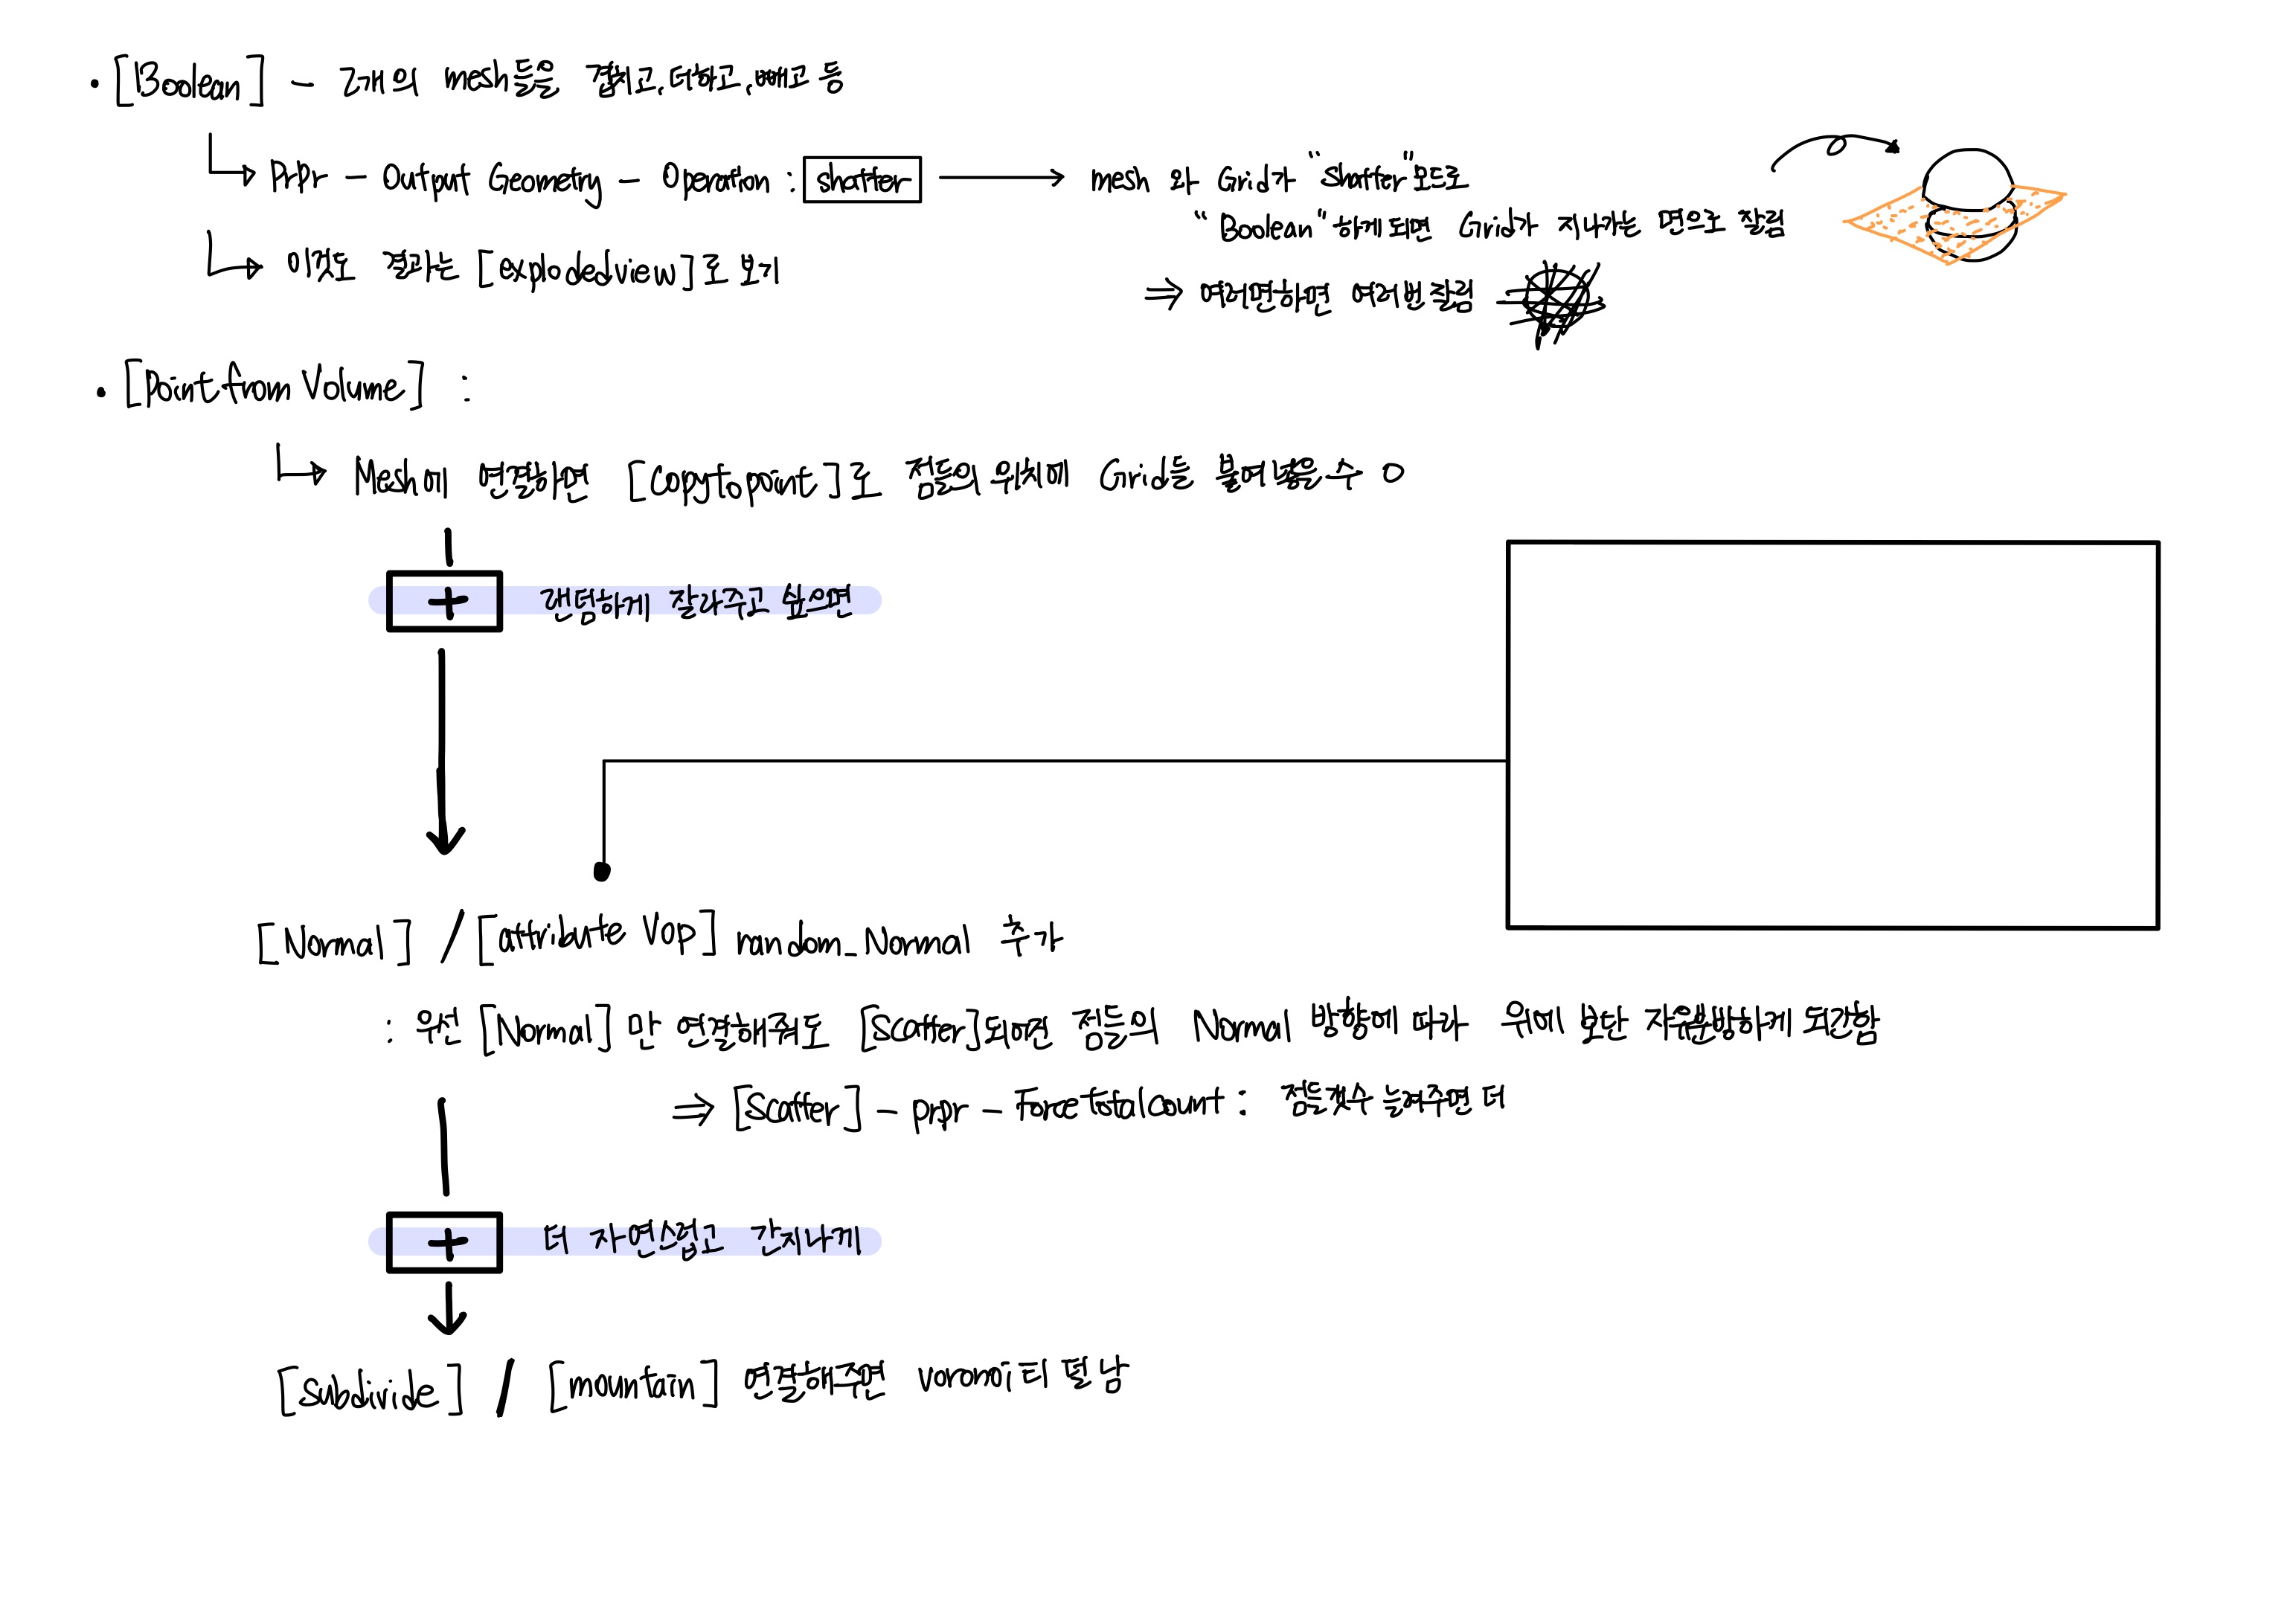 • [Boolean] - 2개의 mesh들을 겹치고, 더하고, 빼고 등
prpr - Output Geometry - Operation : shatter → mesh 와 Grid가 "Shatter"모드로
"Boolean" 하게 되면 Grid가 지나가는 면으로 잘림
이것도 결과는 [exploded view]로 보기
⇒ 여러면하면 여러번 잘림
• [Point from Volume] :
Mesh에 연결하면 [Copytopoint]로 점들의 위치에 Grid들 붙여넣을 수 O
+ 랜덤하게 잘라주고 싶으면
[Normal] / [attribute Vop] random_Normal 추가
: 우선 [Normal]만 연결해줘도 [Scatter]되어진 점들의 Normal 방향에 따라 위에 보단 자유분방하게 되긴함
⇒ [Scatter] - prpr - Force total count : 점들갯수 늘려주면 더
+ 더 자연스럽고 간지나게
[Subdivide] / [mountain] 연결해주면 voronoi티 덜 남